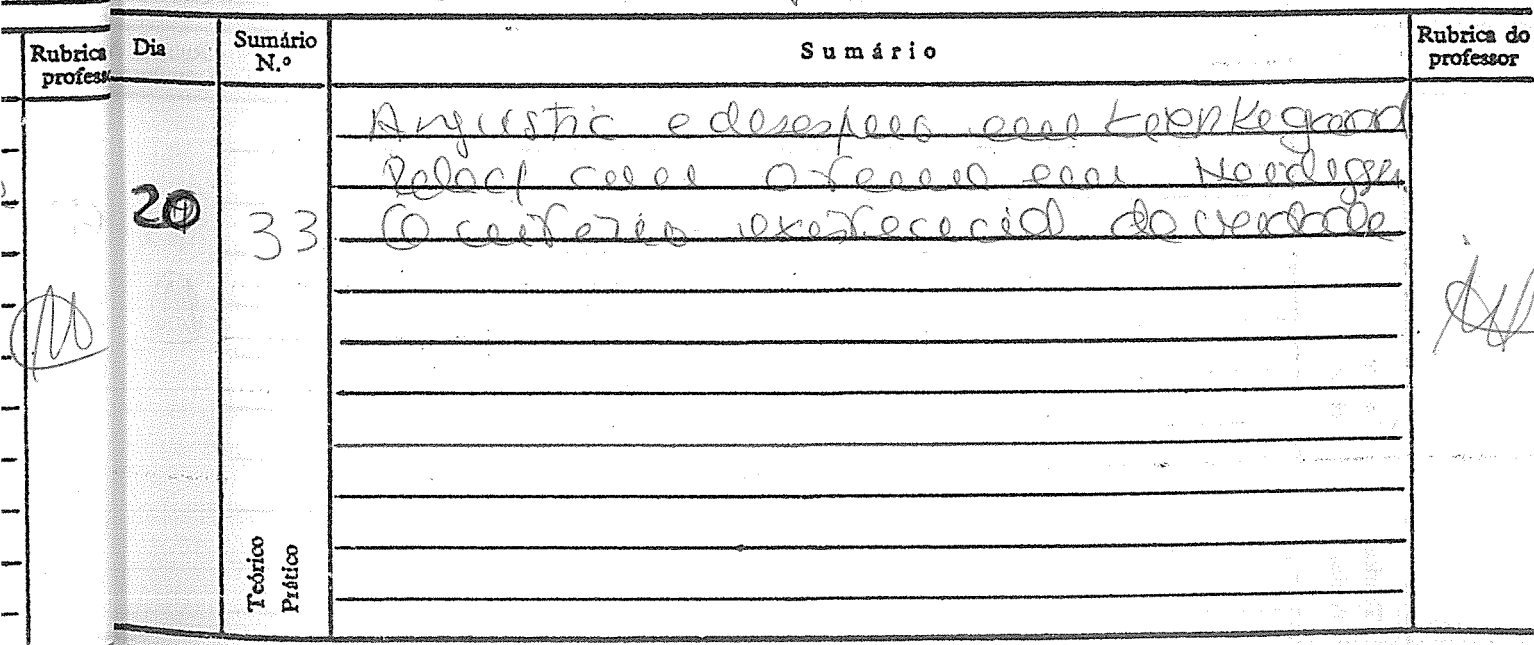 Rubrica
professor
Dia
Sumário
N.º
Sumário
Rubrica do
professor
Angústia e desespero em Kierkegaard
com em Heidegger
20
33
O critério existencial da verdade
Teórico
Prático